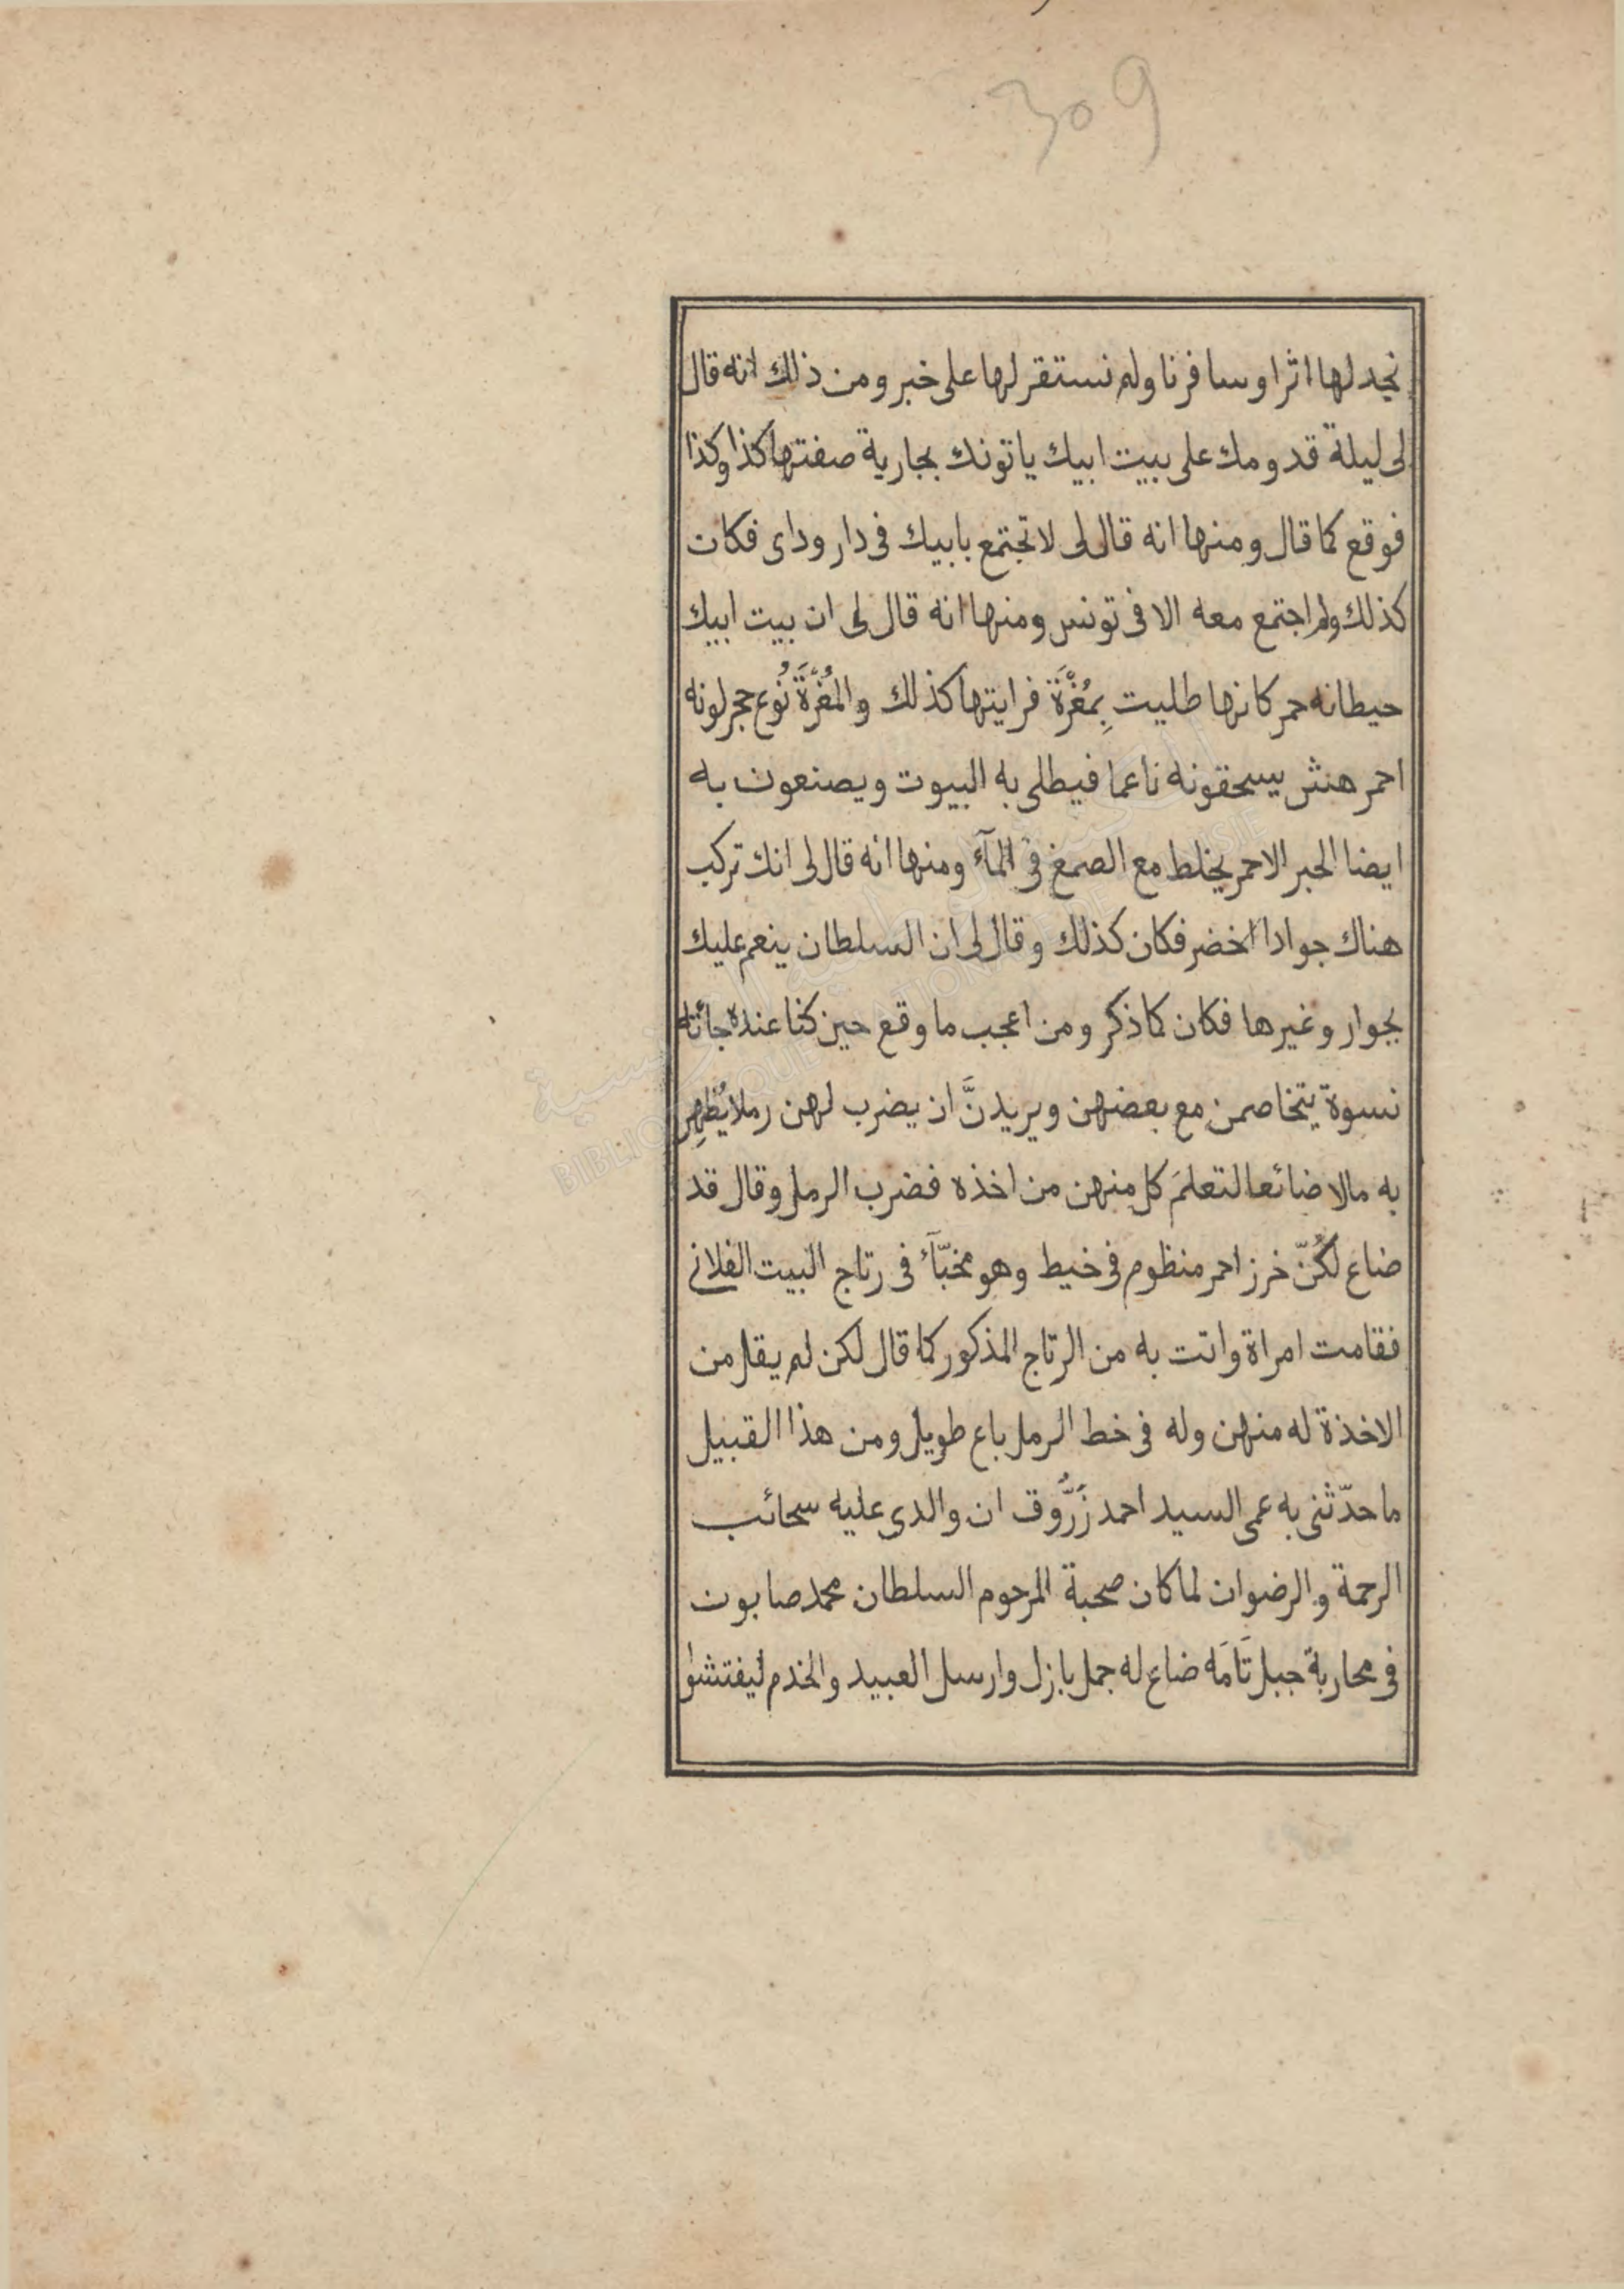 309
نجد لها اثرا وسافرنا ولم نستقر لها على خبر ومن ذلك انه قال
لى ليلة قدومك على بيت ابيك ياتونك بجارية صفتها كذا وكذا
فوقع كما قال ومنها انه قال لى لا تجتمع بابيك فى دار وداى فكان
كذلك ولم اجتمع معه الا فى تونس ومنها انه قال لى ان بيت ابيك
حيطانه حمر كانها طليت بِمُغَّرَة فرايتها كذلك والمُغَّرَة نُوع حجر لونه
احمر هش يسحقونه ناعما فيطلى به البيوت ويصنعون به
ايضا الحبر الاحمر يخلط مع الصمغ فى المآء ومنها انه قال لى انك تركب
هناك جوادا اخضر فكان كذلك وقال لى ان السلطان ينعم عليك
بجوار وغيرها فكان كما ذكر ومن اعجب ما وقع حين كنا عنده جائته
نسوة يتخاصمن مع بعضهن ويريدنَّ ان يضرب لهن رملا يُظهِر
به مالا ضائعا لتعلمَ كل منهن من اخذه فضرب الرمل وقال قد
ضاع لكُنّ خرز احمر منظوم فى خيط وهو مخبّأ فى رتاج البيت الفلانى
فقامت امراة واتت به من الرتاج المذكور كما قال لكن لم يقل من
الاخذة له منهن وله فى خط الرمل باع طويل ومن هذا القبيل
ما حدّثنى به عمى السيد احمد زَرُّوق ان والدى عليه سحائب
الرحمة والرضوان لما كان صحبة المرحوم السلطان محمد صابون
فى محاربة جبل تَامَه ضاع له جمل بازل وارسل العبيد والخدم ليفتشوا